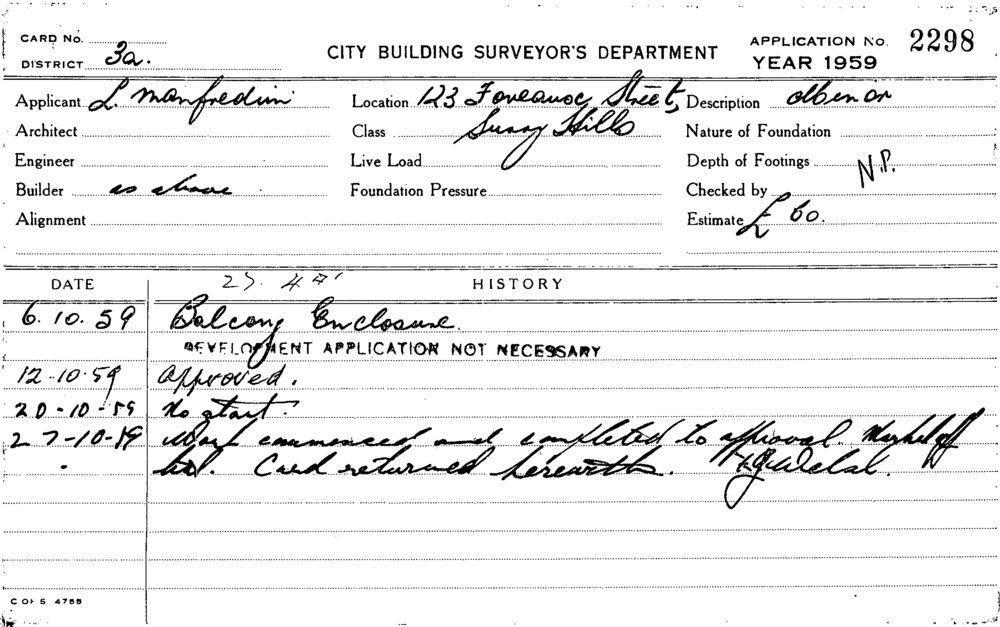 CARD No.
DISTRICT 3a.
CITY BUILDING SURVEYOR'S DEPARTMENT
APPLICATION No. 2298
YEAR 1959
Applicant L. Manfredini Location 123 Foveaux Street, Description
Architect Class Surry Hills Nature of Foundation
Engineer Live Load Depth of Footings
Builder as above Foundation Pressure Checked by N.P.
Alignment Estimate £ 60.
DATE HISTORY
6.10.59 Balcony Enclosure.
DEVELOPMENT APPLICATION NOT NECESSARY
12-10-59 Approved.
20-10-59 No start.
27-10-59 Work commenced and completed to approval. Marked off
Card returned herewith.
C OF S 4755